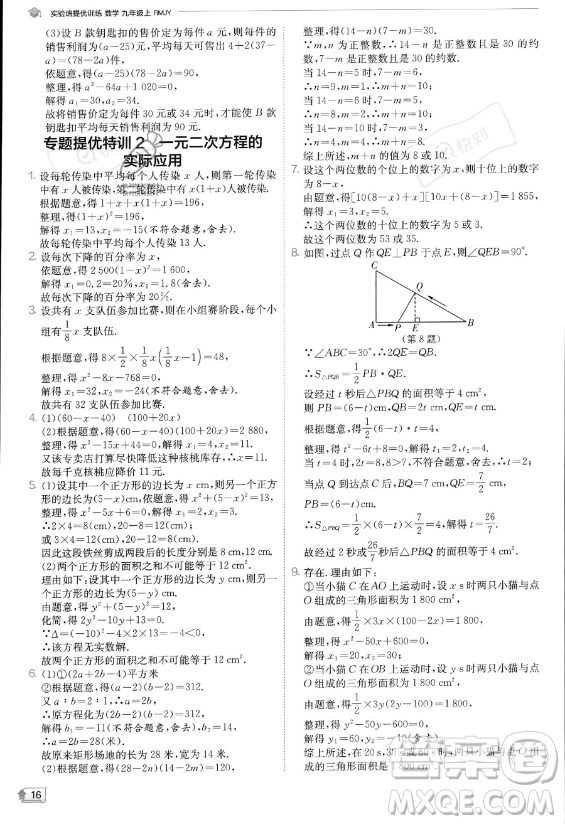 实验班提优训练 数学 九年级上 RMJY
(3)设 B 款钥匙扣的售价定为每件 a 元,则每件的
销售利润为(a-25)元,平均每天可售出 4+2(37-
a)=(78-2a)件,
依题意,得(a-25)(78-2a)=90,
整理,得 a²-64a+1 020=0,
解得 a₁=30,a₂=34.
故将销售价定为每件 30 元或 34 元时,才能使 B 款
钥匙扣平均每天销售利润为 90 元.
专题提优特训 2 一元二次方程的
实际应用
1. 设每轮传染中平均每个人传染 x 人,则第一轮传染
中有 x 人被传染,第二轮传染中有 x(1+x)人被传染.
根据题意,得 1+x+x(1+x)=196,
整理,得(1+x)²=196,
解得 x₁=13,x₂=-15(不符合题意,舍去).
故每轮传染中平均每个人传染 13 人.
2. 设每次下降的百分率为 x,
依题意,得 2 500(1-x)²=1 600,
解得 x₁=0.2=20%,x₂=1.8(舍去).
故每次下降的百分率为 20%.
3. 设共有 x 支队伍参加比赛,则在小组赛阶段,每个小
组有 1/8 x 支队伍.
根据题意,得 8×1/2×1/8 x(1/8 x-1)=48,
整理,得 x²-8x-768=0,
解得 x₁=32,x₂=-24(不符合题意,舍去).
故共有 32 支队伍参加比赛.
4. (1)(60-x-40) (100+20x)
(2)根据题意,得(60-x-40)(100+20x)=2 200,
整理,得 x²-15x+44=0,解得 x₁=4,x₂=11.
又该专卖店打算尽快降低这种核桃库存,故 x=11.
故每千克核桃应降价 11 元.
5. (1)设其中一个正方形的边长为 x cm,则另一个正方
形的边长为(5-x)cm,依题意,得 x²+(5-x)²=13,
整理,得 x²-5x+6=0,解得 x₁=2,x₂=3.
∴2×4=8(cm),20-8=12(cm);
或 3×4=12(cm),20-12=8(cm).
因此这段铁丝剪成两段后的长度分别是 8 cm,12 cm.
(2)两个正方形的面积之和不可能等于 12 cm².
理由如下:设其中一个正方形的边长为 y cm,则另一
个正方形的边长为(5-y)cm,
由题意,得 y²+(5-y)²=12,
化简,得 2y²-10y+13=0,
∵Δ=(-10)²-4×2×13=-4<0,
∴该方程无实数解.
故两个正方形的面积和不可能等于 12 cm².
6. (1)①(15-a)平方米
②根据题意,得
又 a
∴原方程化简为
b₁=-60(舍去),b₂=2,
∴a=2b=28(米).
故原来矩形场地的长为 28 米,宽为 14 米.
整理,得
∵m,n 为正整数,
当 14-n=5 时,7-m=6,
∴n=9,m=1,∴m+n=10.
∴n=8,m=2,∴m+n=10.
综上所述,m+n 的值为 8 或 10.
7. 设这个两位数的个位上的数字为 x,则十位上的数字
为 8-x,
由题意,得[10(8-x)+x][10x+(8-x)]=1 855,
解得 x₁=3,x₂=5.
故这个两位数的十位上的数字为 5 或 3.
故这个两位数为 53 或 35.
8. 如图,过点 Q 作 QE⊥PB 于点 E,则∠QEB=90°.
C
Q
A P E B
(第 8 题)
∵∠ABC=30°,∴2QE=QB.
∴S△PQB=1/2 PB·QE.
设经过 t 秒后△PBQ 的面积等于 4 cm²,
则 PB=(6-t)cm,QB=2t cm,QE=t cm.
根据题意,得 1/2·(6-t)·t=4,
整理,得 t²-6t+8=0,解得 t₁=2,t₂=4.
当 t=4 时,2t=8,8>7,不符合题意,舍去,取 t=2.
当点 Q 到达 C 点时,BQ=7 cm,QE=7/2 cm,
PB=(6-t)cm,
∴S△PQB=1/2×(6-t)×7/2=4,解得 t=26/7.
故经过 2 秒或 26/7 秒后△PBQ 的面积等于 4 cm².
9. 存在.理由如下:
①当小猫 C 在 AO 上运动时,设 x s 时两只小猫与点
O 组成的三角形面积为 1 800 cm².
整理,得 x²-50x+600=0,
②当小猫 C 在 OB 上运动时,设 y s 时两只小猫与点
O 组成的三角形面积为 1 800 cm².
整理,得 y²-50y-600=0,
解得 y₁=60,y₂=-10(舍去).
成的三角形的面积为 1 800 cm².
16
快对
答案圈
MXQE.COM